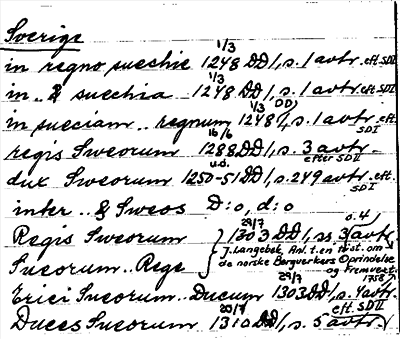 Sverige
1/3
in regno suechie 1248 DD 1, s. 1 avtr. eft. SD I
1/3
in .. & suechia 1248 DD 1, s. 1 avtr. eft. SD I
1/3 DD)
in sueciam .. regnum 1248 1, s. 1 avtr. eft. SD I
16/6
regis Sweorum 1288 DD 1, s. 3 avtr. efter SD II
u.d.
dux Sweorum 1250-51 DD 1, s. 249 avtr. eft. SD I
inter .. & Sweos D:o, d:o
29/7 o. 4
Regis Sweorum } 1303 DD 1, ss. 3 avtr.
Sueorum .. Rege } J. Langebek, Anl. t. en Hist. om de norske Bergverkers Oprindelse og Fremvext 1758
29/7
Erici Sueorum .. Ducum 1303 DD 1, s. 4 avtr. eft. SD II
20/7
Duces Sueorum 1310 DD 1, s. 5 avtr.